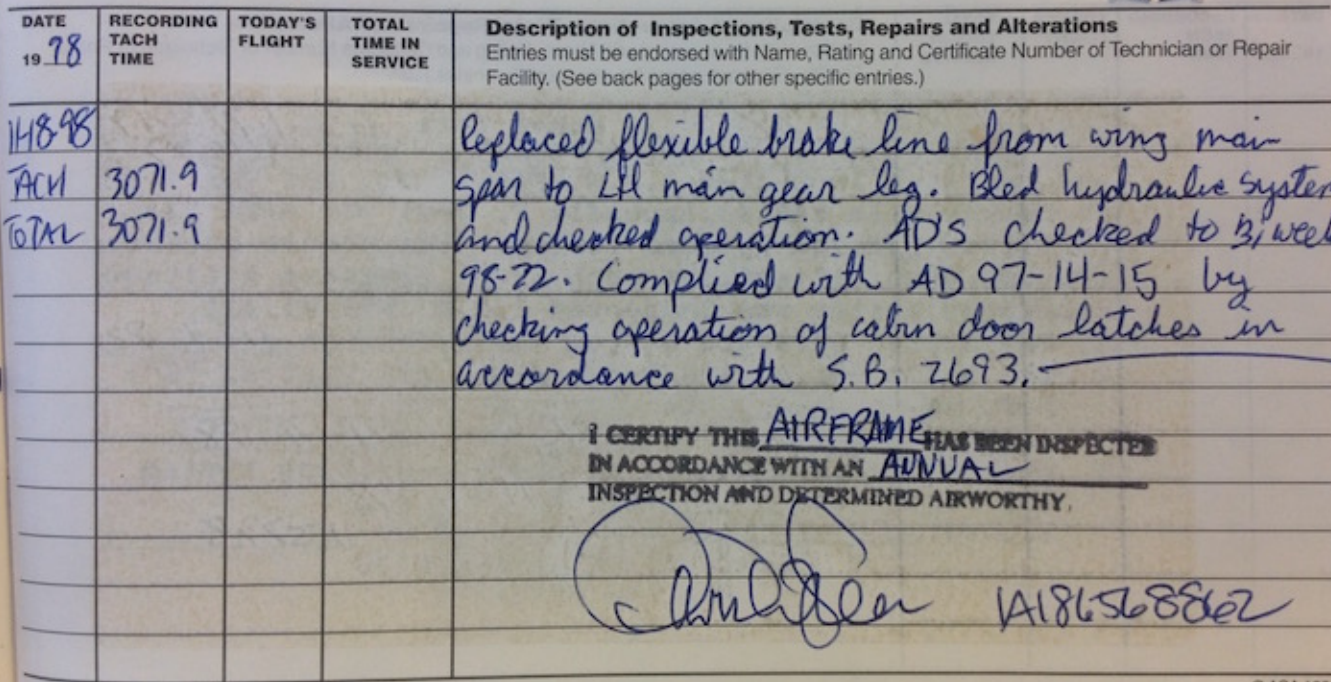 DATE
19 98
RECORDING
TACH
TIME
TODAY'S
FLIGHT
TOTAL
TIME IN
SERVICE
Description of Inspections, Tests, Repairs and Alterations
Entries must be endorsed with Name, Rating and Certificate Number of Technician or Repair
Facility. (See back pages for other specific entries.)
11-18-98 Replaced flexible brake line from wing main
TACH 3071.9 spar to LH main gear leg. Bled hydraulic system
TOTAL 3071.9 and checked operation. AD'S checked to Biweek
98-22. Complied with AD 97-14-15 by
checking operation of cabin door latches in
accordance with S.B. 2693.
I CERTIFY THIS AIRFRAME HAS BEEN INSPECTED
IN ACCORDANCE WITH AN ANNUAL
INSPECTION AND DETERMINED AIRWORTHY.
IA186568862